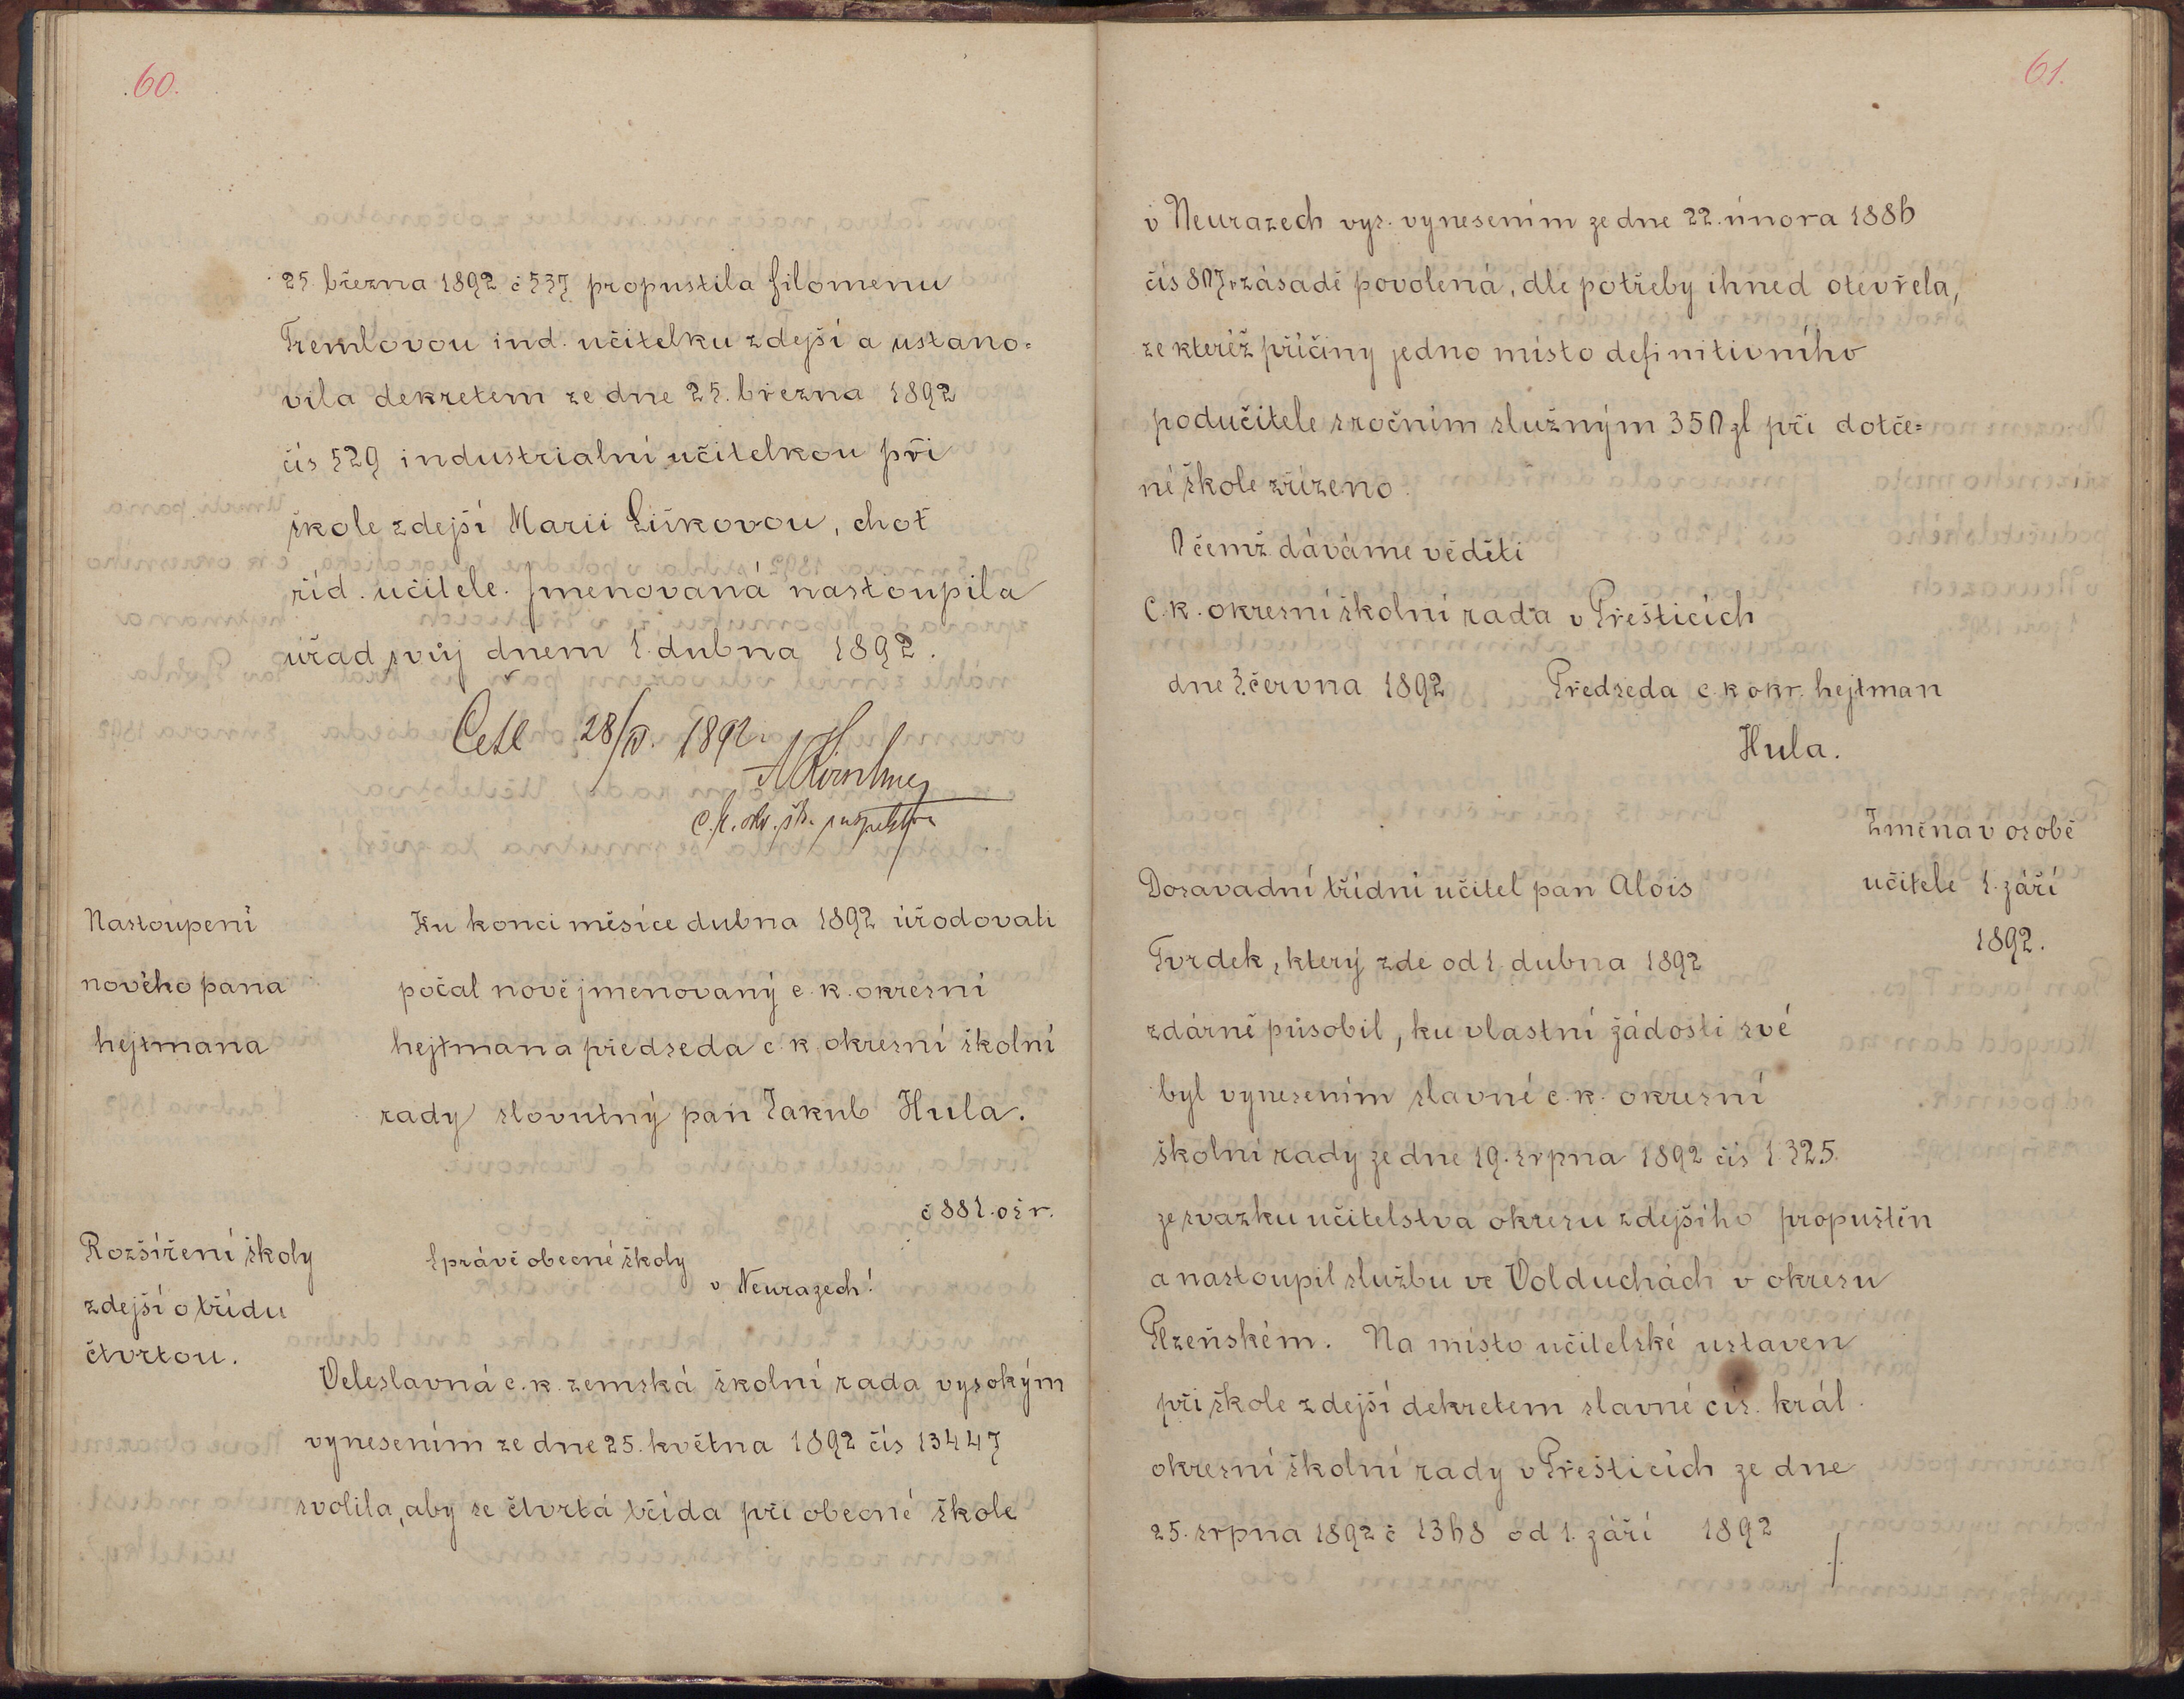 60.
25. března 1892 č 537 propustila Filomenu
Tremlovou ind. učitelku zdejší a ustano=
vila dekretem ze dne 25. března 1892
čís 529 industrialní učitelkou při
škole zdejší Marii Liškovou, choť
říd. učitele. Jmenovaná nastoupila
úřad svůj dnem 1. dubna 1892.
Četl 28/IV. 1892
c. k. okr. šk. inspektor
Nastoupení
nového pana
hejtmana
Ku konci měsíce dubna 1892 úřodovati
počal nově jmenovaný c. k. okresní
hejtman a předseda c. k. okresní školní
rady slovutný pan Jakub Hula.
č 881. oš r.
Rozšíření školy
zdejší o třídu
čtvrtou.
Správě obecné školy
v Neurazech!
Veleslavná c. k. zemská školní rada vysokým
vynesením ze dne 25. května 1892 čís 13447
svolila, aby se čtvrtá třída při obecné škole
61.
v Neurazech vys. vynesením ze dne 22. února 1886
čís 807 v zásadě povolená, dle potřeby ihned otevřela,
ze kteréž příčiny jedno místo definitivního
podučitele s ročním služným 350 zl při dotče=
né škole zřízeno.
O čemž dáváme věděti
C. k. okresní školní rada v Přešticích
dne 3. června 1892 Předseda c. k. okr. hejtman
Hula.
Změna v osobě
učitele 1. září
1892.
Dosavadní třídní učitel pan Alois
Tvrdek, který zde od 1. dubna 1892
zdárně působil, ku vlastní žádosti své
byl vynesením slavné c. k. okresní
školní rady ze dne 19. srpna 1892 čís 1325.
ze svazku učitelstva okresu zdejšího propuštěn
a nastoupil službu ve Volduchách v okresu
Plzeňském. Na místo učitelské ustaven
při škole zdejší dekretem slavné cís. král.
okresní školní rady v Přešticích ze dne
25. srpna 1892 č 1368 od 1. září 1892
./.